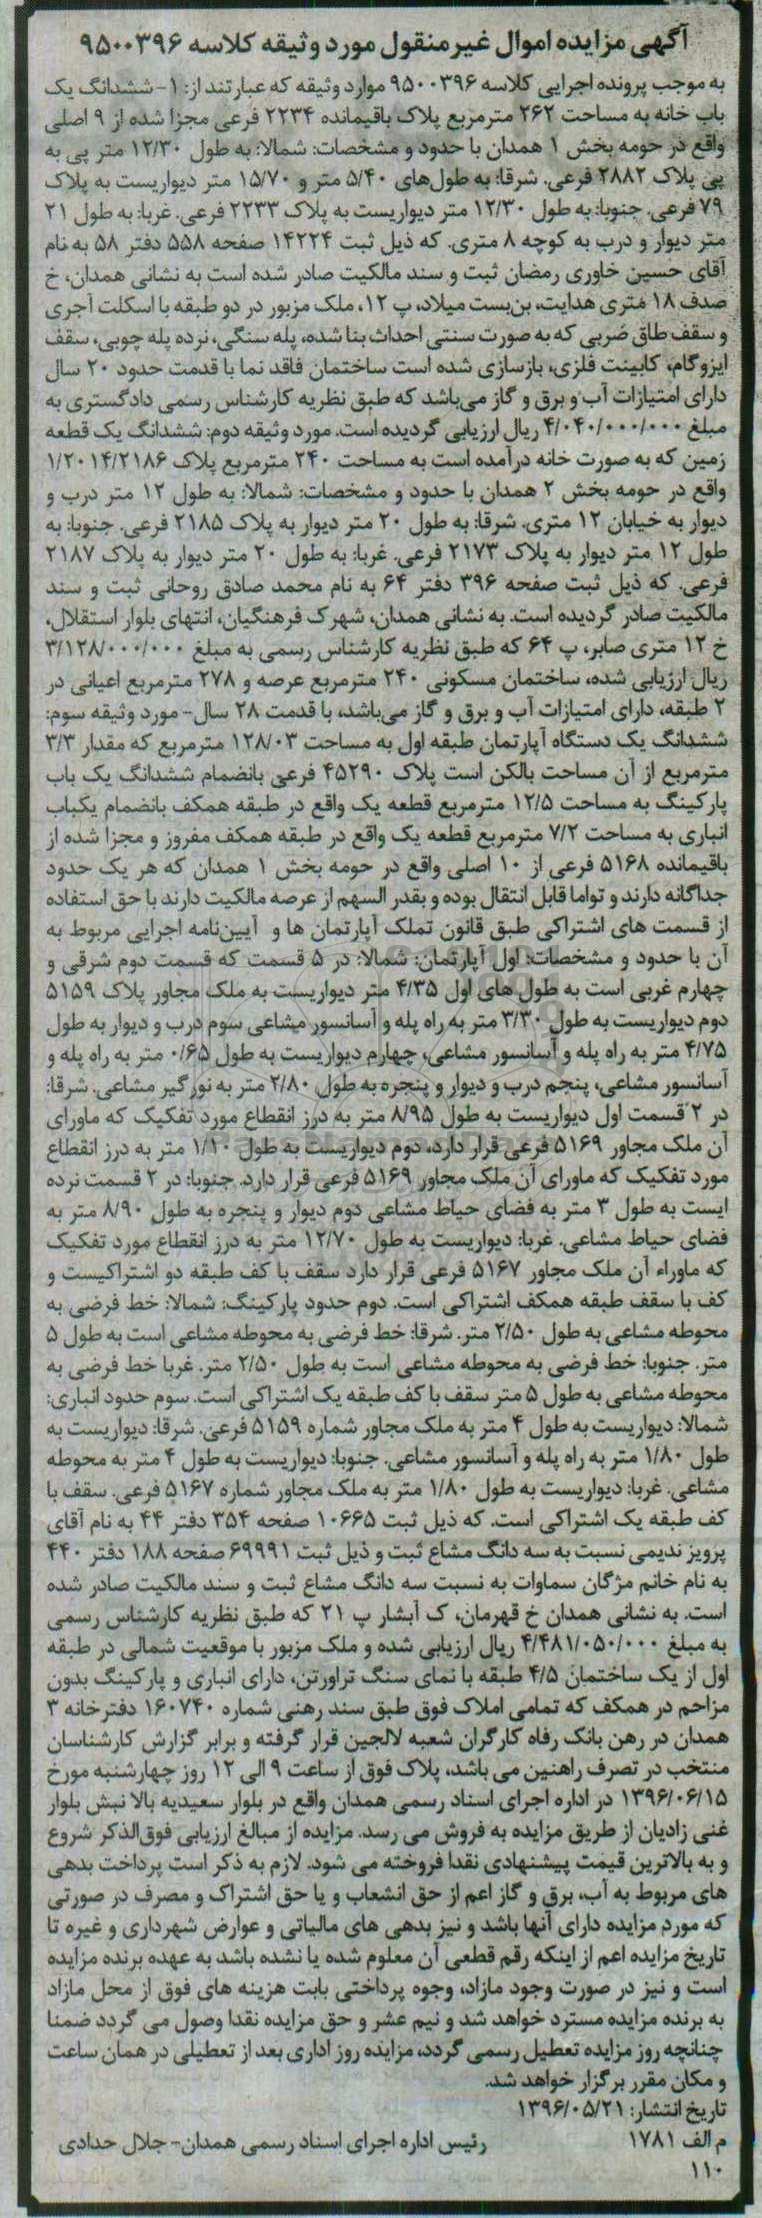 آگهی مزایده اموال غیرمنقول مورد وثیقه کلاسه ۹۵۰۰۳۹۶
به موجب پرونده اجرایی کلاسه ۹۵۰۰۳۹۶ موارد وثیقه که عبارتند از: ۱-ششدانگ یک
باب خانه به مساحت ۲۶۲ مترمربع پلاک باقیمانده ۲۲۳۴ فرعی مجزا شده از ۹ اصلی
واقع در حومه بخش ۱ همدان با حدود و مشخصات: شمالا: به طول ۱۲/۳۰ متر پی به
پی پلاک ۲۸۸۲ فرعی. شرقا: به طول‌های ۵/۴۰ متر و ۱۵/۷۰ متر دیواریست به پلاک
۷۹ فرعی. جنوبا: به طول ۱۲/۳۰ متر دیواریست به پلاک ۲۲۳۳ فرعی. غربا: به طول ۲۱
متر دیوار و درب به کوچه ۸ متری. که ذیل ثبت ۱۴۲۲۴ صفحه ۵۵۸ دفتر ۵۸ به نام
آقای حسین خاوری رمضان ثبت و سند مالکیت صادر شده است به نشانی همدان، خ
صدف ۱۸ متری هدایت، بن‌بست میلاد، پ ۱۲، ملک مزبور در دو طبقه با اسکلت آجری
و سقف طاق ضربی که به صورت سنتی احداث بنا شده، پله سنگی، نرده پله چوبی، سقف
ایزوگام، کابینت فلزی، بازسازی شده است ساختمان فاقد نما با قدمت حدود ۲۰ سال
دارای امتیازات آب و برق و گاز می‌باشد که طبق نظریه کارشناس رسمی دادگستری به
مبلغ ۴/۰۴۰/۰۰۰/۰۰۰ ریال ارزیابی گردیده است. مورد وثیقه دوم: ششدانگ یک قطعه
زمین که به صورت خانه درآمده است به مساحت ۲۴۰ مترمربع پلاک ۱/۲۰۱۴/۲۱۸۶
واقع در حومه بخش ۲ همدان با حدود و مشخصات: شمالا: به طول ۱۲ متر درب و
دیوار به خیابان ۱۲ متری. شرقا: به طول ۲۰ متر دیوار به پلاک ۲۱۸۵ فرعی. جنوبا: به
طول ۱۲ متر دیوار به پلاک ۲۱۷۳ فرعی. غربا: به طول ۲۰ متر دیوار به پلاک ۲۱۸۷
فرعی. که ذیل ثبت صفحه ۳۹۶ دفتر ۶۴ به نام محمد صادق روحانی ثبت و سند
مالکیت صادر گردیده است. به نشانی همدان، شهرک فرهنگیان، انتهای بلوار استقلال،
خ ۱۲ متری صابر، پ ۶۴ که طبق نظریه کارشناس رسمی به مبلغ ۳/۱۲۸/۰۰۰/۰۰۰
ریال ارزیابی شده، ساختمان مسکونی ۲۴۰ مترمربع عرصه و ۲۷۸ مترمربع اعیانی در
۲ طبقه، دارای امتیازات آب و برق و گاز می‌باشد، با قدمت ۲۸ سال- مورد وثیقه سوم:
ششدانگ یک دستگاه آپارتمان طبقه اول به مساحت ۱۲۸/۰۳ مترمربع که مقدار ۳/۳
مترمربع از آن مساحت بالکن است پلاک ۴۵۲۹۰ فرعی بانضمام ششدانگ یک باب
پارکینگ به مساحت ۱۲/۵ مترمربع قطعه یک واقع در طبقه همکف بانضمام یکباب
انباری به مساحت ۷/۲ مترمربع قطعه یک واقع در طبقه همکف مفروز و مجزا شده از
باقیمانده ۵۱۶۸ فرعی از ۱۰ اصلی واقع در حومه بخش ۱ همدان که هر یک حدود
جداگانه دارند و تواما قابل انتقال بوده و بقدر السهم از عرصه مالکیت دارند با حق استفاده
از قسمت های اشتراکی طبق قانون تملک آپارتمان ها و آیین‌نامه اجرایی مربوط به
آن با حدود و مشخصات: اول آپارتمان: شمالا: در ۵ قسمت که قسمت دوم شرقی و
چهارم غربی است به طول های اول ۴/۳۵ متر دیواریست به ملک مجاور پلاک ۵۱۵۹
دوم دیواریست به طول ۳/۳۰ متر به راه پله و آسانسور مشاعی سوم درب و دیوار به طول
۴/۷۵ متر به راه پله و آسانسور مشاعی، چهارم دیواریست به طول ۰/۶۵ متر به راه پله و
آسانسور مشاعی، پنجم درب و دیوار و پنجره به طول ۲/۸۰ متر به نورگیر مشاعی. شرقا:
در ۲ قسمت اول دیواریست به طول ۸/۹۵ متر به درز انقطاع مورد تفکیک که ماورای
آن ملک مجاور ۵۱۶۹ فرعی قرار دارد، دوم دیواریست به طول ۱/۱۰ متر به درز انقطاع
مورد تفکیک که ماورای آن ملک مجاور ۵۱۶۹ فرعی قرار دارد. جنوبا: در ۲ قسمت نرده
ایست به طول ۳ متر به فضای حیاط مشاعی دوم دیوار و پنجره به طول ۸/۹۰ متر به
فضای حیاط مشاعی. غربا: دیواریست به طول ۱۲/۷۰ متر به درز انقطاع مورد تفکیک
که ماوراء آن ملک مجاور ۵۱۶۷ فرعی قرار دارد سقف با کف طبقه دو اشتراکیست و
کف با سقف طبقه همکف اشتراکی است. دوم حدود پارکینگ: شمالا: خط فرضی به
محوطه مشاعی به طول ۲/۵۰ متر. شرقا: خط فرضی به محوطه مشاعی است به طول ۵
متر. جنوبا: خط فرضی به محوطه مشاعی است به طول ۲/۵۰ متر. غربا خط فرضی به
محوطه مشاعی به طول ۵ متر سقف با کف طبقه یک اشتراکی است. سوم حدود انباری:
شمالا: دیواریست به طول ۴ متر به ملک مجاور شماره ۵۱۵۹ فرعی. شرقا: دیواریست به
طول ۱/۸۰ متر به راه پله و آسانسور مشاعی. جنوبا: دیواریست به طول ۴ متر به محوطه
مشاعی. غربا: دیواریست به طول ۱/۸۰ متر به ملک مجاور شماره ۵۱۶۷ فرعی. سقف با
کف طبقه یک اشتراکی است. که ذیل ثبت ۱۰۶۶۵ صفحه ۳۵۴ دفتر ۴۴ به نام آقای
پرویز ندیمی نسبت به سه دانگ مشاع ثبت و ذیل ثبت ۶۹۹۹۱ صفحه ۱۸۸ دفتر ۴۴۰
به نام خانم مژگان سماوات به نسبت سه دانگ مشاع ثبت و سند مالکیت صادر شده
است. به نشانی همدان خ قهرمان، ک آبشار پ ۲۱ که طبق نظریه کارشناس رسمی
به مبلغ ۴/۴۸۱/۰۵۰/۰۰۰ ریال ارزیابی شده و ملک مزبور با موقعیت شمالی در طبقه
اول از یک ساختمان ۴/۵ طبقه با نمای سنگ تراورتن، دارای انباری و پارکینگ بدون
مزاحم در همکف که تمامی املاک فوق طبق سند رهنی شماره ۱۶۰۷۴۰ دفترخانه ۳
همدان در رهن بانک رفاه کارگران شعبه لالجین قرار گرفته و برابر گزارش کارشناسان
منتخب در تصرف راهنین می باشد، پلاک فوق از ساعت ۹ الی ۱۲ روز چهارشنبه مورخ
۱۳۹۶/۰۶/۱۵ در اداره اجرای اسناد رسمی همدان واقع در بلوار سعیدیه بالا نبش بلوار
غنی زادیان از طریق مزایده به فروش می رسد. مزایده از مبالغ ارزیابی فوق‌الذکر شروع
و به بالاترین قیمت پیشنهادی نقدا فروخته می شود. لازم به ذکر است پرداخت بدهی
های مربوط به آب، برق و گاز اعم از حق انشعاب و یا حق اشتراک و مصرف در صورتی
که مورد مزایده دارای آنها باشد و نیز بدهی های مالیاتی و عوارض شهرداری و غیره تا
تاریخ مزایده اعم از اینکه رقم قطعی آن معلوم شده یا نشده باشد به عهده برنده مزایده
است و نیز در صورت وجود مازاد، وجوه پرداختی بابت هزینه های فوق از محل مازاد
به برنده مزایده مسترد خواهد شد و نیم عشر و حق مزایده نقدا وصول می گردد ضمنا
چنانچه روز مزایده تعطیل رسمی گردد، مزایده روز اداری بعد از تعطیلی در همان ساعت
و مکان مقرر برگزار خواهد شد.
تاریخ انتشار: ۱۳۹۶/۰۵/۲۱
م الف ۱۷۸۱ رئیس اداره اجرای اسناد رسمی همدان- جلال حدادی
۱۱۰